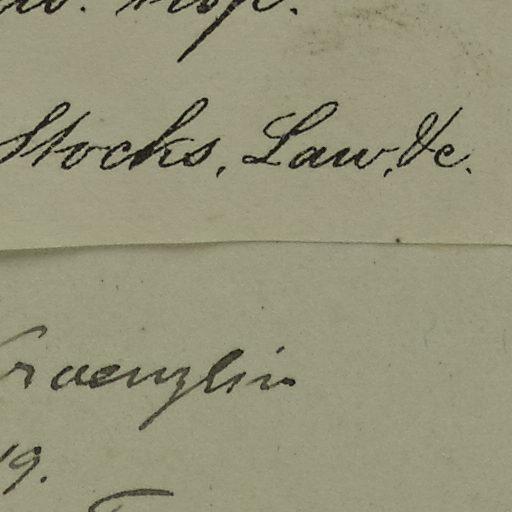 Stocks, Law, &c.
Kraenzlin
19.